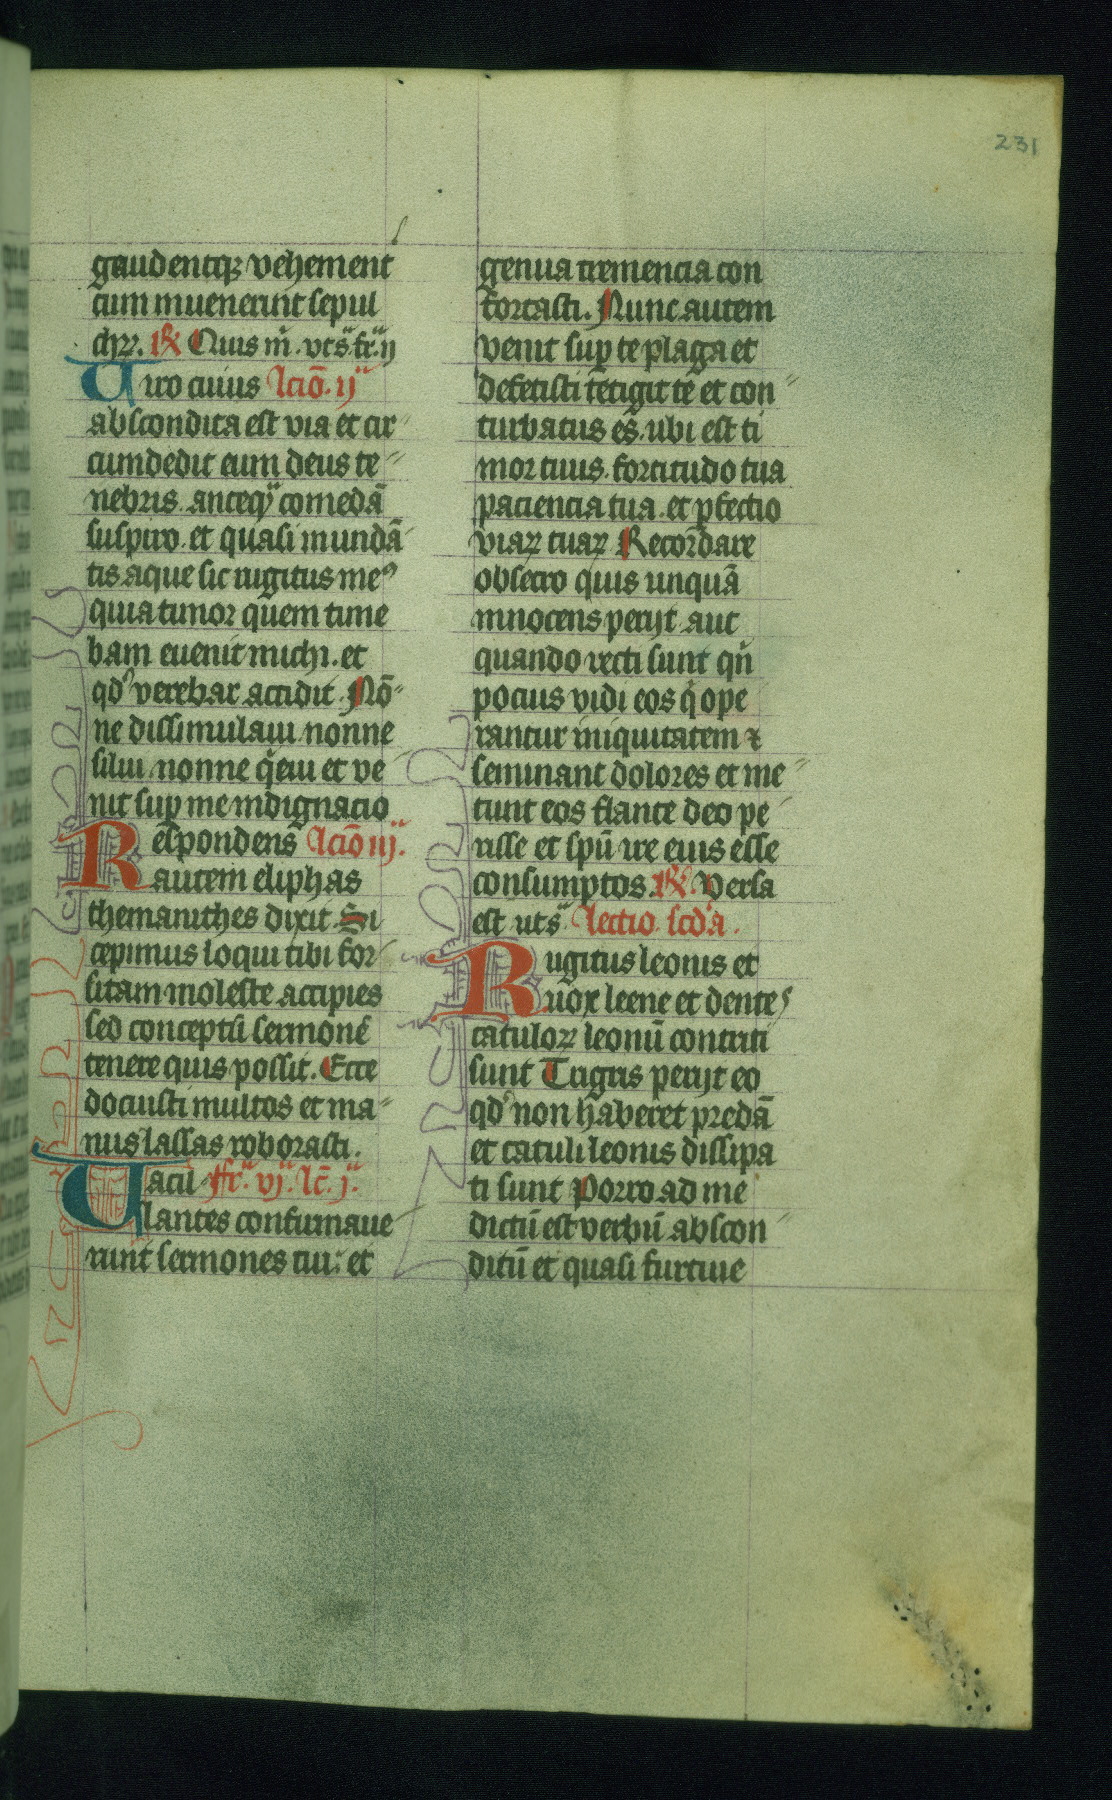 231
gaudentq̃ vehement
cum inuenerint sepul
chꝝ. ℟ Quis m̃. vts̃. fr̃. ij
Uiro cuius lcio̅. ij
abscondita est via et cir
cumdedit eum deus te
nebris. anteq̃ comedã
suspiro. et quasi inundã
tis aque sic rugitus meꝰ
quia timor quem time
bam euenit michi. et
qd' verebar accidit. Nõ
ne dissimulaui nonne
silui nonne q̃eui et ve
nit sup̱ me indignacio
Respondens lcio̅ iij.
autem eliphas
themanithes dixit. Si
cepimus loqui tibi for
sitam moleste accipies
sed conceptũ sermonẽ
tenere quis possit. Ecce
docuisti multos et ma
nus lassas roborasti.
Uacil fr̃. vj. lc̃. j.
lantes confirmaue
runt sermones tui: et
genua trementia con
fortasti. Nunc autem
venit sup̱ te plaga et
defecisti tetigit te et con
turbatus es. ubi est ti
mor tuus. fortitudo tua
paciencia tua. et p̱fectio
viaꝝ tuaꝝ Recordare
obsecro quis unquã
innocens perijt aut
quando recti sunt qñ
pocius vidi eos q̇ ope
rantur iniquitatem ⁊
seminant dolores et me
tunt eos flante deo pe
risse et spũ ire eius esse
consumptos. ℟ Versa
est uts̃ lectio scd'a.
Rugitus leonis et
uox leene et dentes
catuloꝝ leonũ contriti
sunt Tigris perijt eo
qd' non haberet predã
et catuli leonis dissipa
ti sunt Porro ad me
dictũ est verbũ abscon
ditũ et quasi furtiue